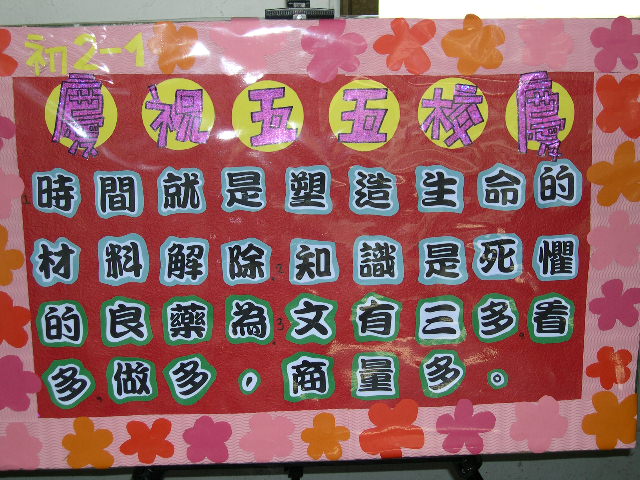 初2-1
慶祝五五校慶
時間就是塑造生命的
材料解除知識是死懼
的良藥為文有三多看
多做多，商量多。